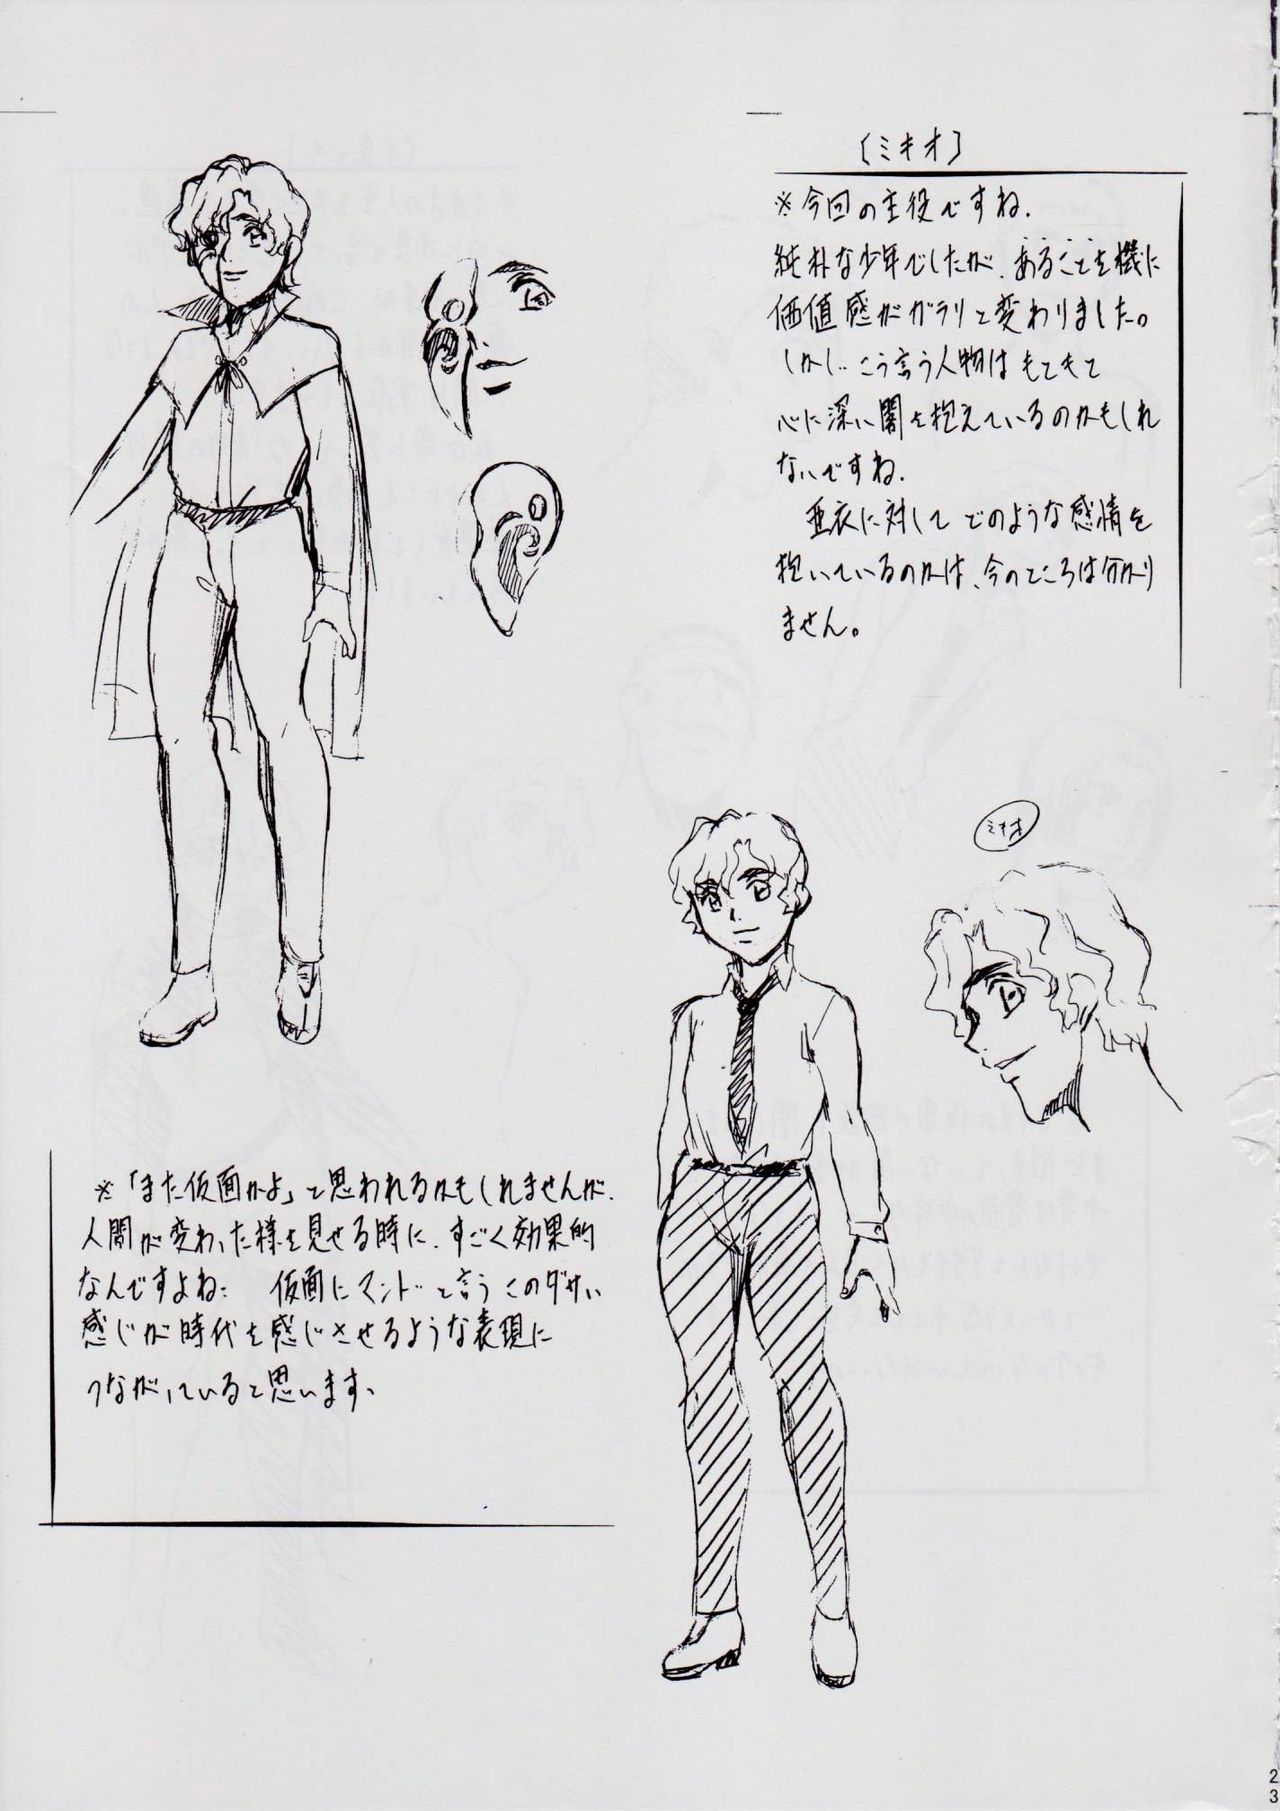 〔ミキオ〕
※今回の主役ですね.
純朴な少年でしたが、あることを機に
価値感がガラリと変わりました。
しかし‥こう言う人物はもてもて
心に深い闇を抱えているのかもしれ
ないですね.
亜衣に対してどのような感情を
抱いているのかは、今のところは分かり
ません。
ミキオ
※「また仮面かよ」と思われるかもしれませんが、
人間が変わった様を見せる時に、すごく効果的
なんですよね: 仮面にマント‥と言うこのダサい
感じが時代を感じさせるような表現に
つながっていると思います、
23